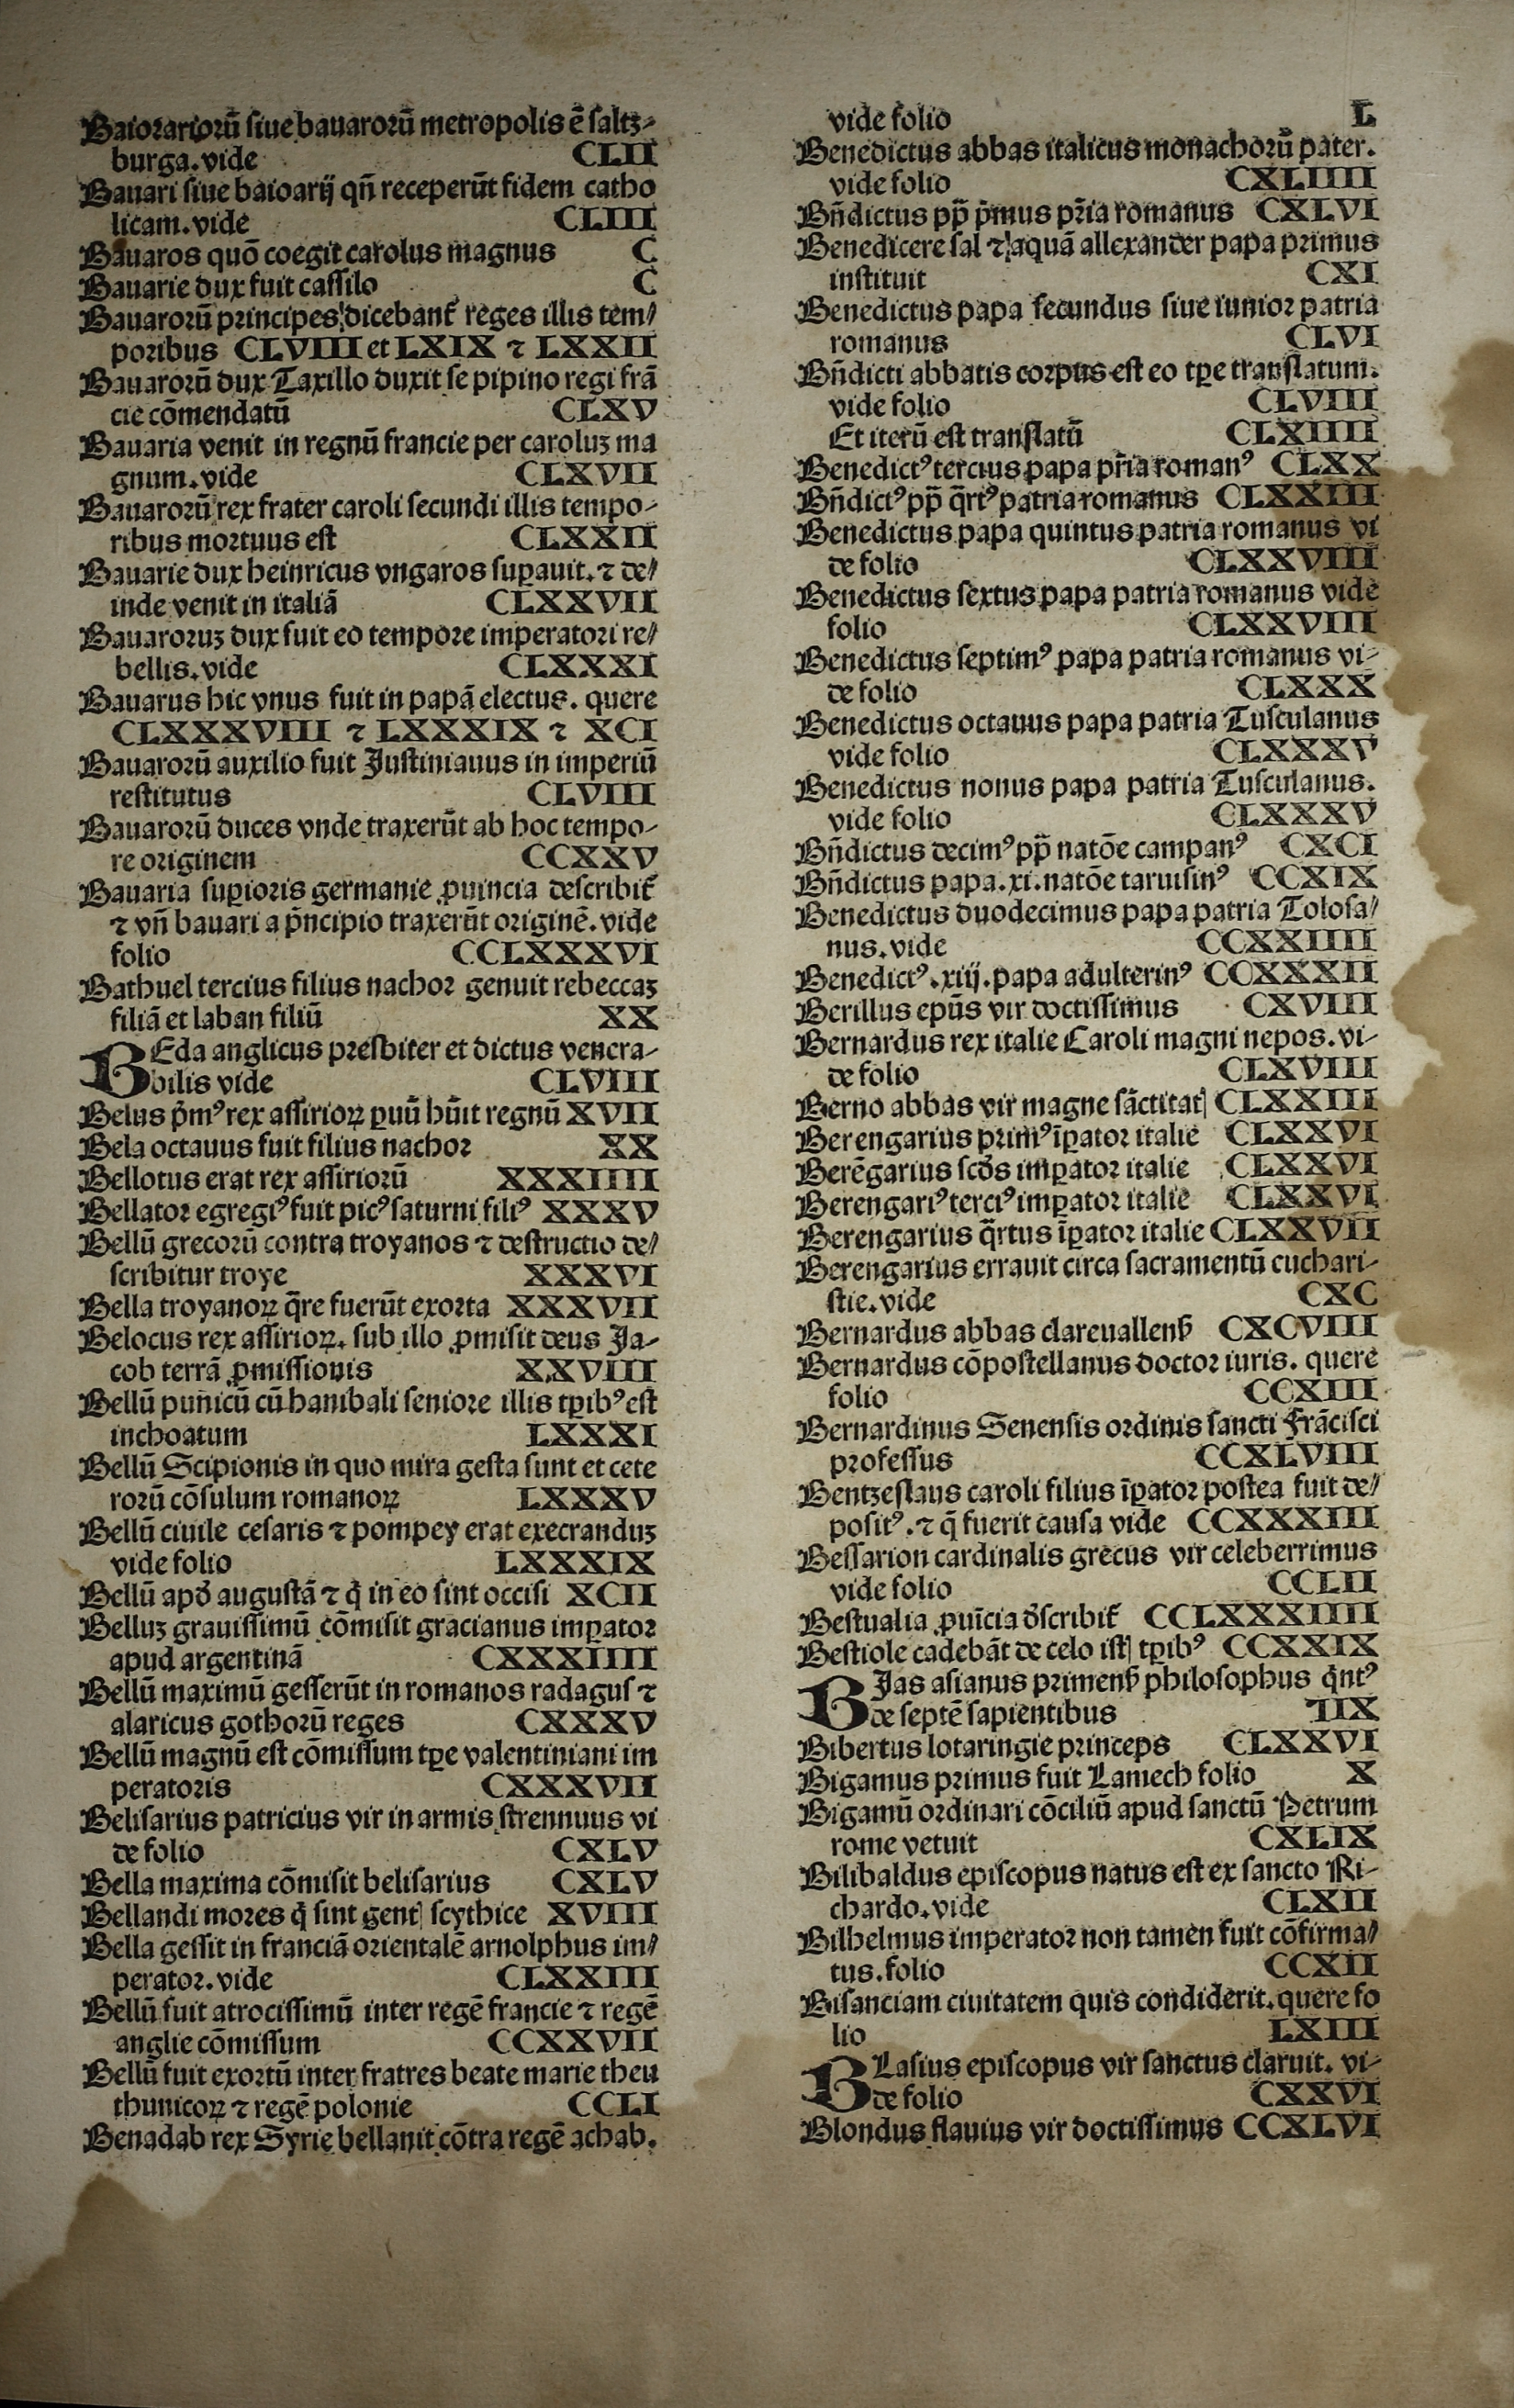 Baiorariorũ ſiue bauarorũ metropolis ẽ ſaltz-
burga. vide CLII
Bauari ſiue baioarij qñ receperũt fidem catho
licam. vide CLIII
Bauaros quõ coegit carolus magnus C
Bauarie dux fuit caſſilo C
Bauarorũ principes dicebant᷑ reges illis tem/
poribus CLVIII et LXIX ⁊ LXXII
Bauarorũ dux Taxillo duxit ſe pipino regi frã
cie cõmendatũ CLXV
Bauaria venit in regnũ francie per caroluꝫ ma
gnum. vide CLXVII
Bauarorũ rex frater caroli ſecundi illis tempo-
ribus mortuus eſt CLXXII
Bauarie dux heinricus vngaros ſuꝑauit. ⁊ de/
inde venit in italiã CLXXVII
Bauaroruꝫ dux fuit eo tempore imperatori re/
bellis. vide CLXXXI
Bauarus hic vnus fuit in papã electus. quere
CLXXXVIII ⁊ LXXXIX ⁊ XCI
Bauarorũ auxilio fuit Juſtinianus in imperiũ
reſtitutus CLVIII
Bauarorũ duces vnde traxerũt ab hoc tempo-
re originem CCXXV
Bauaria ſuꝑioris germanie ꝓuincia deſcribit᷑
⁊ vñ bauari a p̃ncipio traxerũt originẽ. vide
folio CCLXXXVI
Bathuel tercius filius nachor genuit rebeccaꝫ
filiã et laban filiũ XX
BEda anglicus preſbiter et dictus venera-
bilis vide CLVIII
Belus p̃mꝰ rex aſſirioꝝ ꝑuũ hũit regnũ XVII
Bela octauus fuit filius nachor XX
Bellotus erat rex aſſiriorũ XXXIIII
Bellator egregiꝰ fuit picꝰ ſaturni filiꝰ XXXV
Bellũ grecorũ contra troyanos ⁊ deſtructio de/
ſcribitur troye XXXVI
Bella troyanoꝝ q̃re fuerũt exorta XXXVII
Belocus rex aſſirioꝝ. ſub illo ꝓmiſit deus Ja-
cob terrã ꝓmiſſionis XXVIII
Bellũ punicũ cũ hanibali ſeniore illis tꝑibꝰ eſt
inchoatum LXXXI
Bellũ Scipionis in quo mira geſta ſunt et cete
rorũ cõſulum romanoꝝ LXXXV
Bellũ ciuile ceſaris ⁊ pompey erat execranduꝫ
vide folio LXXXIX
Bellũ apđ auguſtã ⁊ q̇ in eo ſint occiſi XCII
Belluꝫ grauiſſimũ cõmiſit gracianus imꝑator
apud argentinã CXXXIIII
Bellũ maximũ geſſerũt in romanos radaguſ ⁊
alaricus gothorũ reges CXXXV
Bellũ magnũ eſt cõmiſſum tꝑe valentiniani im
peratoris CXXXVII
Beliſarius patricius vir in armis ſtrennuus vi
de folio CXLV
Bella maxima cõmiſit beliſarius CXLV
Bellandi mores q̇ ſint gentꝭ ſcythice XVIII
Bella geſſit in franciã orientalẽ arnolphus im/
perator. vide CLXXIII
Bellũ fuit atrociſſimũ inter regẽ francie ⁊ regẽ
anglie cõmiſſum CCXXVII
Bellũ fuit exortũ inter fratres beate marie theu
thunicoꝝ ⁊ regẽ polonie CCLI
Benadab rex Syrie bellauit cõtra regẽ achab.
vide folio L
Benedictus abbas italicus monachorũ pater.
vide folio CXLIIII
Bñdictus pp̃ p̃mus pr̃ia romanus CXLVI
Benedicere ſal ⁊ aquã allexander papa primus
inſtituit CXI
Benedictus papa ſecundus ſiue iunior patria
romanus CLVI
Bñdicti abbatis corpus eſt eo tꝑe tranſlatum.
vide folio CLVIII
Et iterũ eſt tranſlatũ CLXIIII
Benedictꝰ tercius papa pr̃ia romanꝰ CLXX
Bñdictꝰ pp̃ q̃rtꝰ patria romanus CLXXIII
Benedictus papa quintus patria romanus vi
de folio CLXXVIII
Benedictus ſextus papa patria romanus vide
folio CLXXVIII
Benedictus ſeptimꝰ papa patria romanus vi-
de folio CLXXX
Benedictus octauus papa patria Tuſculanus
vide folio CLXXXV
Benedictus nonus papa patria Tuſculanus.
vide folio CLXXXV
Bñdictus decimꝰ pp̃ natõe campanꝰ CXCI
Bñdictus papa. xi. natõe taruiſinꝰ CCXIX
Benedictus duodecimus papa patria Toloſa/
nus. vide CCXXIIII
Benedictꝰ. xiij. papa adulterinꝰ CCXXXII
Berillus epũs vir doctiſſimus CXVIII
Bernardus rex italie Caroli magni nepos. vi-
de folio CLXVIII
Berno abbas vir magne ſãctitatꝭ CLXXIII
Berengarius primꝰ ĩꝑator italie CLXXVI
Berẽgarius ſcđs imꝑator italie CLXXVI
Berengariꝰ terciꝰ imꝑator italie CLXXVI
Berengarius q̃rtus ĩꝑator italie CLXXVII
Berengarius errauit circa ſacramentũ euchari-
ſtie. vide CXC
Bernardus abbas clareuallenꝭ CXCVIII
Bernardus cõpoſtellanus doctor iuris. quere
folio CCXIII
Bernardinus Senenſis ordinis ſancti Frãciſci
profeſſus CCXLVIII
Bentzeſlaus caroli filius ĩꝑator poſtea fuit de/
poſitꝰ. ⁊ q̃ fuerit cauſa vide CCXXXIII
Beſſarion cardinalis grecus vir celeberrimus
vide folio CCLII
Beſtualia ꝓuĩcia đſcribit᷑ CCLXXXIIII
Beſtiole cadebãt de celo iſtꝭ tꝑibꝰ CCXXIX
BJas aſianus primenꝭ philoſophus q̇ntꝰ
de ſeptẽ ſapientibus IIX
Bibertus lotaringie princeps CLXXVI
Bigamus primus fuit Lamech folio X
Bigamũ ordinari cõciliũ apud ſanctũ Petrum
rome vetuit CXLIX
Bilibaldus epiſcopus natus eſt ex ſancto Ri-
chardo. vide CLXII
Bilhelmus imperator non tamen fuit cõfirma/
tus. folio CCXII
Biſanciam ciuitatem quis condiderit. quere fo
lio LXIII
BLaſius epiſcopus vir ſanctus claruit. vi-
de folio CXXVI
Blondus flauius vir doctiſſimus CCXLVI